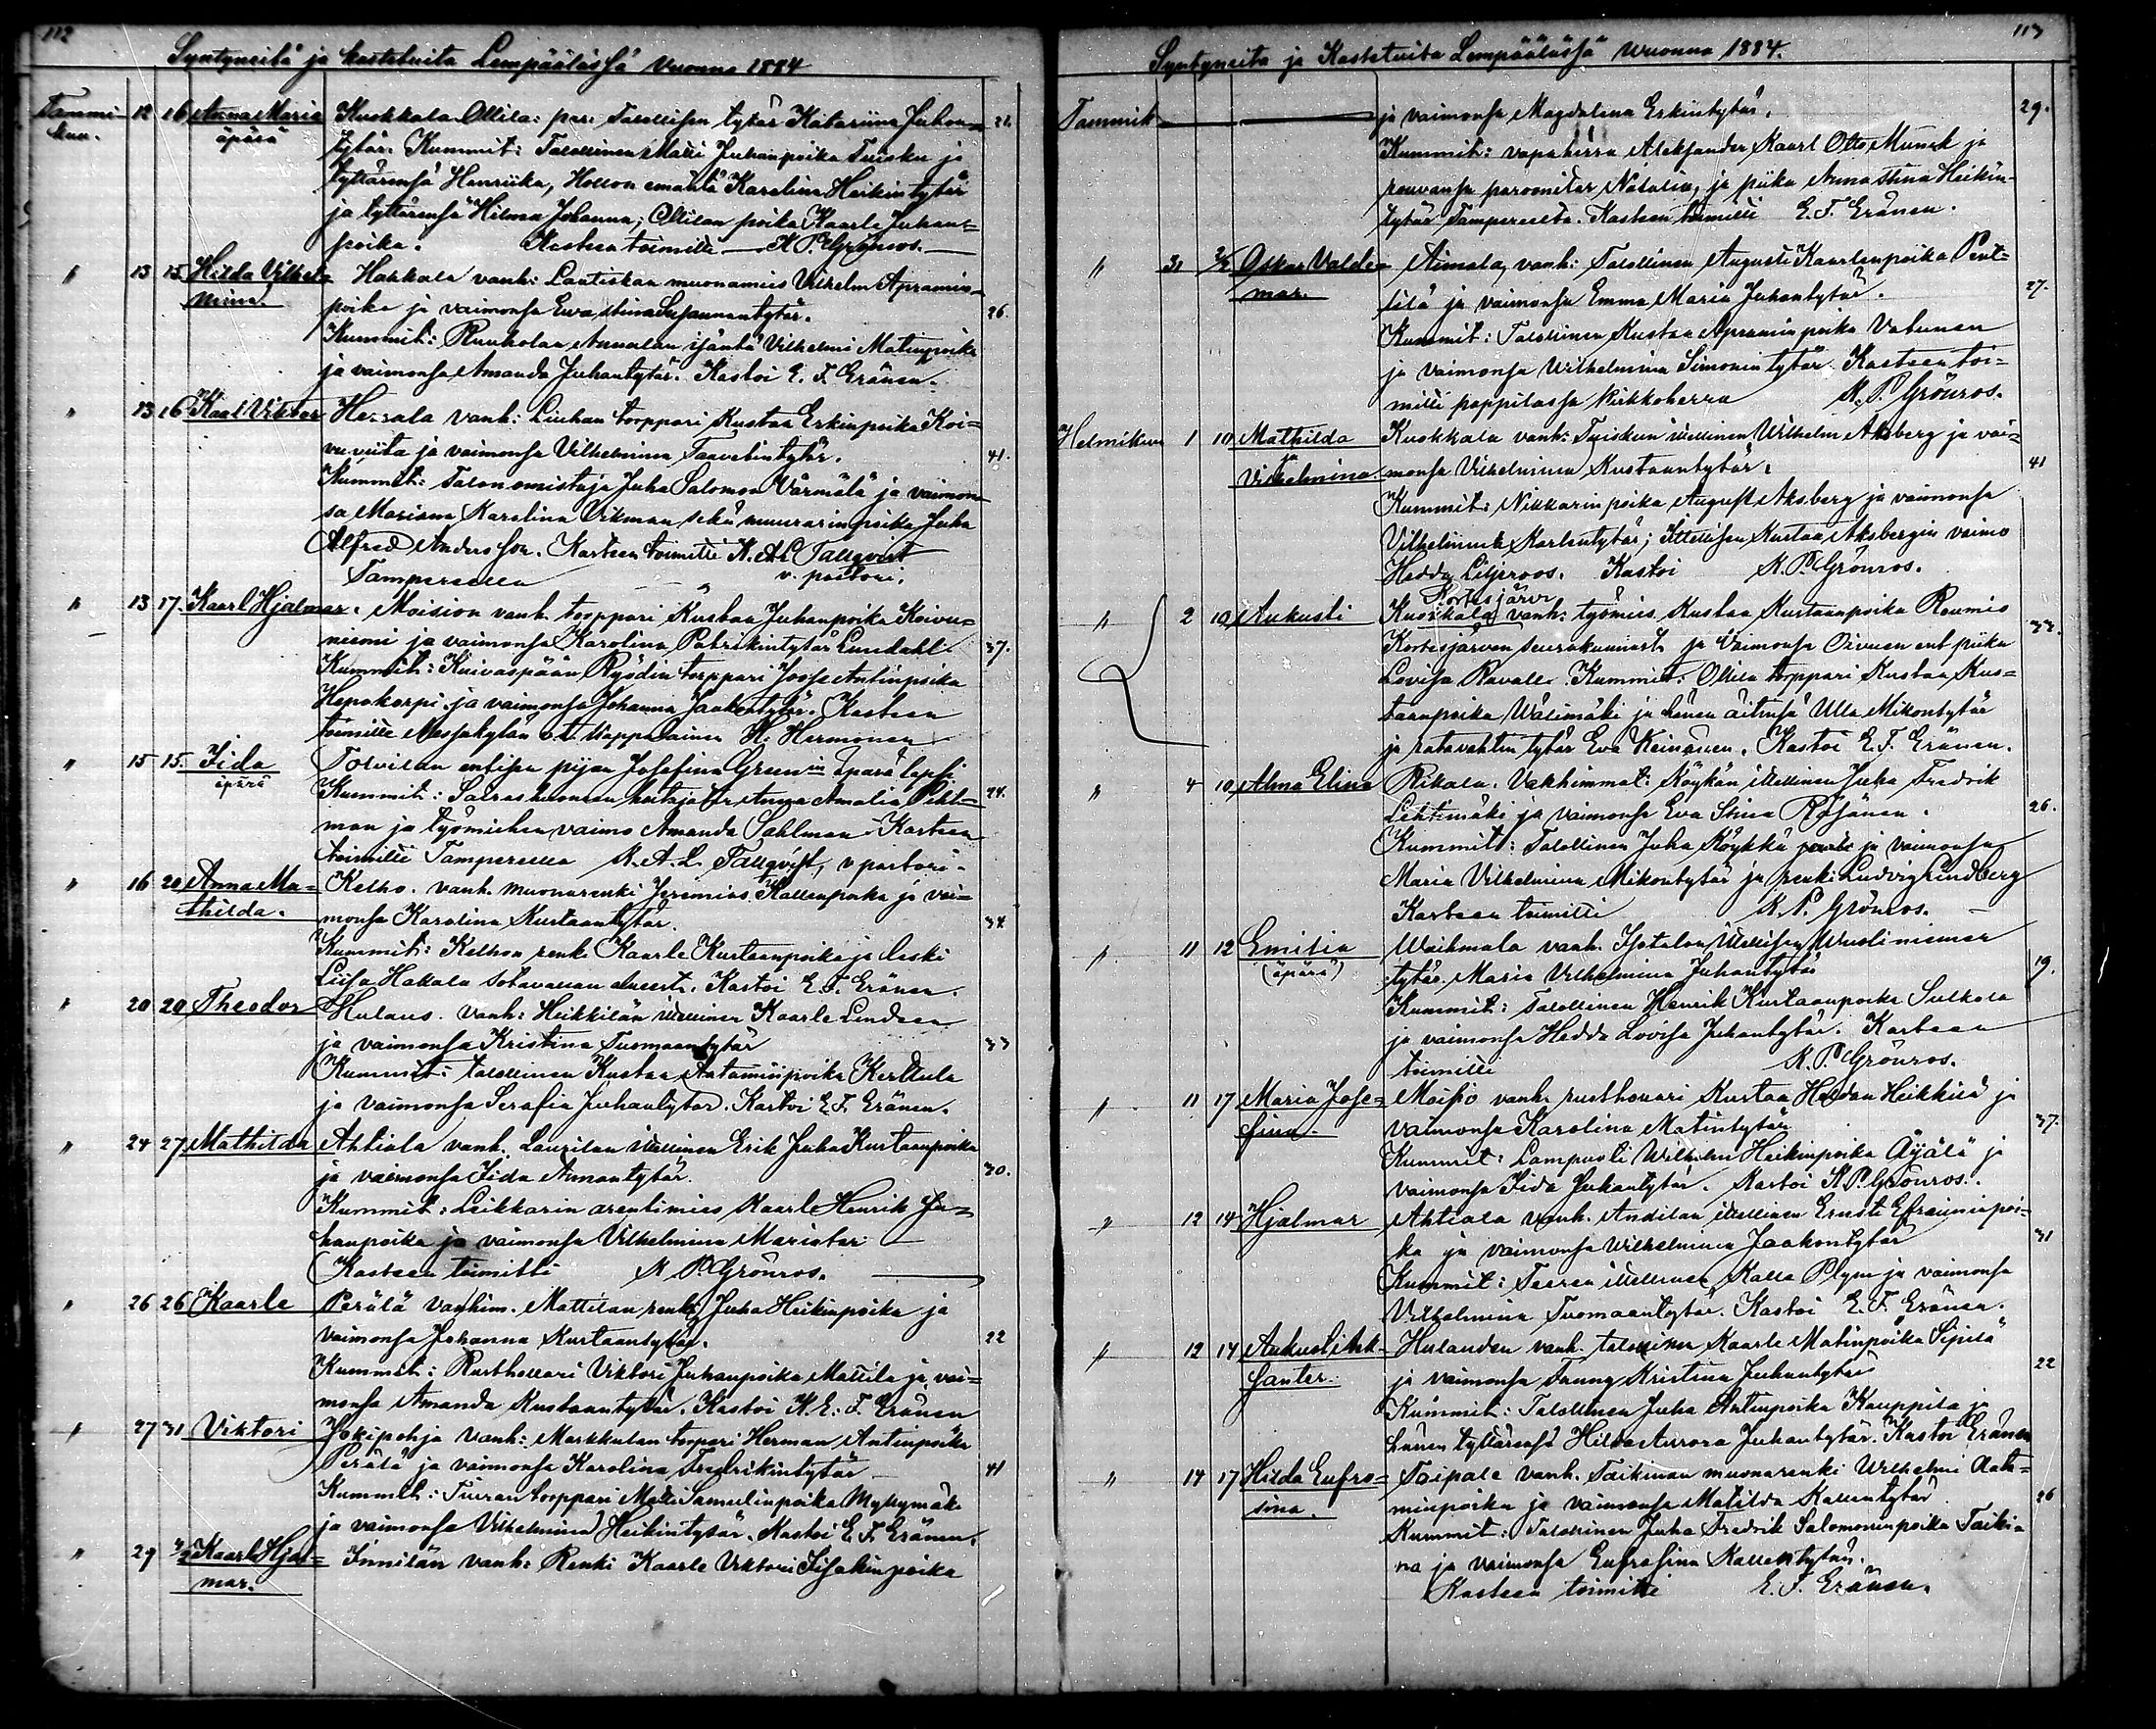 112
Syntyneitä ja kastetuita Lempäälässä Vuonna 1884
Tammi- 12 16 Anna Maria Kuokkala Ollila: par. Talollisen tytär Katariina Juhon- 21.
kuu. äpärä tytär. Kummit: Talollinen Matti Juhanpoika Tuisku ja
tyttärensä Henriika, Hollon emäntä Karolina Heikintytär
ja tyttärensä Hilma Johanna; Ollilan poika Kaarle Juhan-
poika. Kasteen toimitti K. P. Grönros.
" 13 15 Hilda Vilhel- Hakkala vanh: Lautiskan muonamies Vilhelm Apramin-
mina. poika ja vaimonsa Eva Stina Susannantytär. 26.
Kummit: Ruuholan Annalan isäntä Vilhelmi Matinpoika
ja vaimonsa Amanda Juhantytär. Kastoi E. F. Eränen.
" 13 16 Kaarl Viktor Herrala vanh: Liuhan torppari Kustaa Erkinpoika Koi-
vuviita ja vaimonsa Vilhelmina Taavetintytär. 41.
Kummit: Talon omistaja Juha Salomon Värmälä ja vaimon-
sa Mariana Karolina Vikman sekä muurarinpoika Juha
Alfred Andersson. Kasteen toimitti K. A. L. Tallqvist
Tampereella v. pastori.
" 13 17. Kaarl Hjalmar. Moision vanh. torppari Kustaa Juhanpoika Koivu-
niemi ja vaimonsa Karolina Patrikintytär Lundahl. 37.
Kummit: Kuivaspään Ryödin torppari Joose Antinpoika
Hepokorpi ja vaimonsa Johanna Jaakontytär. Kasteen
toimitti Messukylän v.t. Kappalainen H. Hermonen
" 15 15. Iida Torvilan entisen piian Josefina Green in äpärä lapsi
äpärä Kummit: Sairashuoneen hoitaja Anna Amalia Pihl- 24.
man ja työmiehen vaimo Amanda Sahlman. Kasteen
toimitti Tampereella K. A. L. Tallqvist, v pastori.
" 16 20 Anna Ma- Kelho. vanh. muonarenki Jeremias Kallenpoika ja vai-
thilda. monsa Karolina Kustaantytär. 34.
Kummit: Kelhon renki Kaarle Kustaanpoika ja leski
Liisa Hakala Sotavallan alueesta. Kastoi E. F. Eränen.
" 20 20 Theodor Hulaus. vanh: Heikkilän itsellinen Kaarle Lindeen
ja vaimonsa Kristina Tuomaantytär 33
Kummit: talollinen Kustaa Aataminpoika Kerttula
ja vaimonsa Serafia Juhantytär. Kastoi E. F. Eränen.
" 24 27. Mathilda Ahtiala vanh. Laurilan itsellinen Erik Juha Kustaanpoika
ja vaimonsa Iida Annantytär. 30.
Kummit: Leikkarin arentimies Kaarle Henrik Ju-
hanpoika ja vaimonsa Vilhelmina Mariatar
Kasteen toimitti K. P. Grönros.
" 26 26 Kaarle Perälä vanhim. Mattilan renki Juha Heikinpoika ja
vaimonsa Johanna Kustaantytär. 22
Kummit: Rusthollari Viktori Juhanpoika Mattila ja vai-
monsa Amanda Kustaantytär. Kastoi K. E. F. Eränen
" 27 31 Viktori Jokipohja vanh: Markkulan torppari Herman Antinpoika
Perälä ja vaimonsa Karolina Fredrikintytär 41
Kummit: Tiuran torppari Matti Samulinpoika Myllymäki
ja vaimonsa Vilhelmina Heikintytär. Kastoi E. F. Eränen.
" 29 3/2 Kaarle Hjal- Innilän vanh: Renki Kaarle Viktori Iisakinpoika
mar.
113
Syntyneitä ja Kastetuita Lempäälässä Wuonna 1884.
Tammik ja vaimonsa Magdalena Erkintytär. 29.
Kummit: vapaherra Aleksander Kaarl Otto Munck ja
rouvansa paroonitar Natalia, ja piika Anna Stina Heikin-
tytär Tampereelta. Kasteen toimitti E. F. Eränen.
" 31 3/2 Oskar Valde- Aimala, vanh: Talollinen Augusti Kaarlenpoika Pent-
mar. tilä ja vaimonsa Emma Maria Juhantytär. 27.
Kummit: Talollinen Kustaa Apraminpoika Vatunen
ja vaimonsa Wilhelmina Simonintytär. Kasteen toi-
mitti pappilassa Kirkkoherra K. P. Grönros.
Helmikuu 1 10 Mathilda Kuokkala vanh: Tuiskun itsellinen Wilhelm Aksberg ja vai-
ja Vilhelmina. monsa Vilhelmina Kustaantytär. 41
Kummit: Nikkarin poika August Aksberg ja vaimonsa
Vilhelmina Karlentytär; Itsellisen Kustaa Aksbergin vaimo
Hedda Liljeroos. Kastoi K. P. Grönros.
Kortesjärvi
" 2 10 Aukusti Kuokkala vanh: työmies Kustaa Kustaanpoika Raumio
Kortesjärven seurakunnast. ja Vaimonsa Oivuen ent. piika 33.
Lovisa Ravall. Kummit: Ollila torppari Kustaa Kus-
taanpoika Wälimäki ja hänen äitinsä Ulla Mikontytär
ja ratavahtin tytär Eva Keinänen. Kastoi E. F. Eränen.
" 4 10 Alma Elina Rikala. Vakhimmat: Köykän itsellinen Juha Fredrik
Lehtimäki ja vaimonsa Eva Stina Rosánen. 26.
Kummit: Talollinen Juha Köykkä ja vaimonsa
Maria Vilhelmina Mikontytär ja renki Ludvig Lindberg
Kasteen toimitti K. P. Grönros.
" 11 12 Emilia Waihmala vanh. Isotalon itsellisen Wuoliniemen
(äpärä) tytär. Maria Vilhelmina Juhantytär 19.
Kummit: Talollinen Henrik Kustaanpoika Sulkola
ja vaimonsa Hedda Lovisa Juhantytär. Kasteen
toimitti K. P. Grönros.
" 11 17 Maria Jose- Moisio vanh. rusthollari Kustaa Herdan Heikkilä ja
fina. vaimonsa Karolina Matintytär 37.
Kummit: Lampuoti Wilhelmi Heikinpoika Äijälä ja
vaimonsa Iida Juhantytär. Kastoi K. P. Grönros.
" 12 14 Hjalmar Ahtiala vanh. Andilan itsellinen Ernsti Efraiminpoi-
ka ja vaimonsa Wilhelmina Jaakontytär 31
Kummit: Teeren itsellinen Kalle Plym ja vaimonsa
Vilhelmina Tuomaantytär. Kastoi E. F. Eränen.
" 12 14 Aukust Alek- Hulauden vanh. talollinen Kaarle Matinpoika Sipilä
santer. ja vaimonsa Fanny Kristina Juhantytär 22
Kummit: Talollinen Juha Antinpoika Kauppila ja
hänen tyttärensä Hilda Aurora Juhantytär. Kastoi Eränen
" 14 17 Hilda Eufro- Taipale vanh. Taikinan muonarenki Wilhelmi Aata-
sina. minpoika ja vaimonsa Matilda Kallentytär 26
Kummit: Talollinen Juha Fredrik Salomoninpoika Taiki-
na ja vaimonsa Eufrosina Kallentytär.
Kasteen toimitti E. F. Eränen.